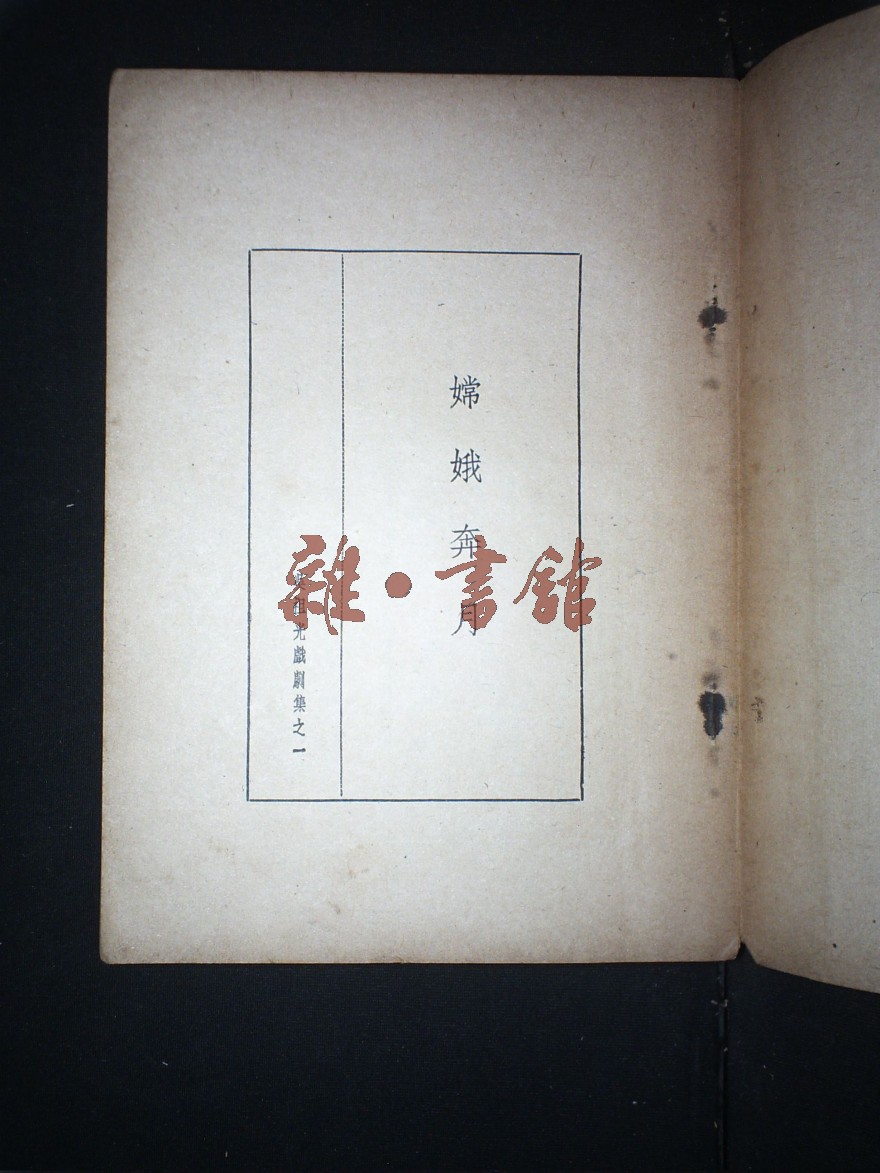 嫦娥奔月
吳祖光戲劇集之一
雜·書館